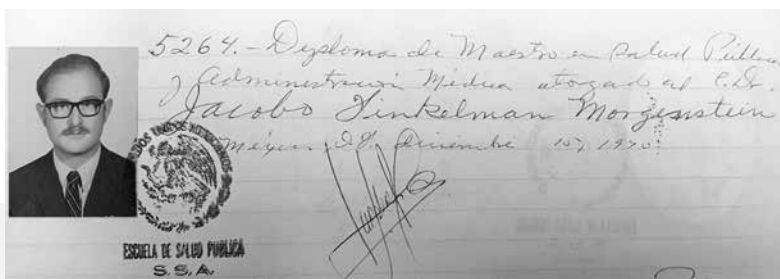 5264.- Diploma de Maestro en Salud Pública
y Administración Médica otorgado al C. Dr.
Jacobo Finkelman Morgenstein
México D.F. Diciembre 15, 1970.
ESTADOS UNIDOS MEXICANOS
ESCUELA DE SALUD PUBLICA
S. S. A.